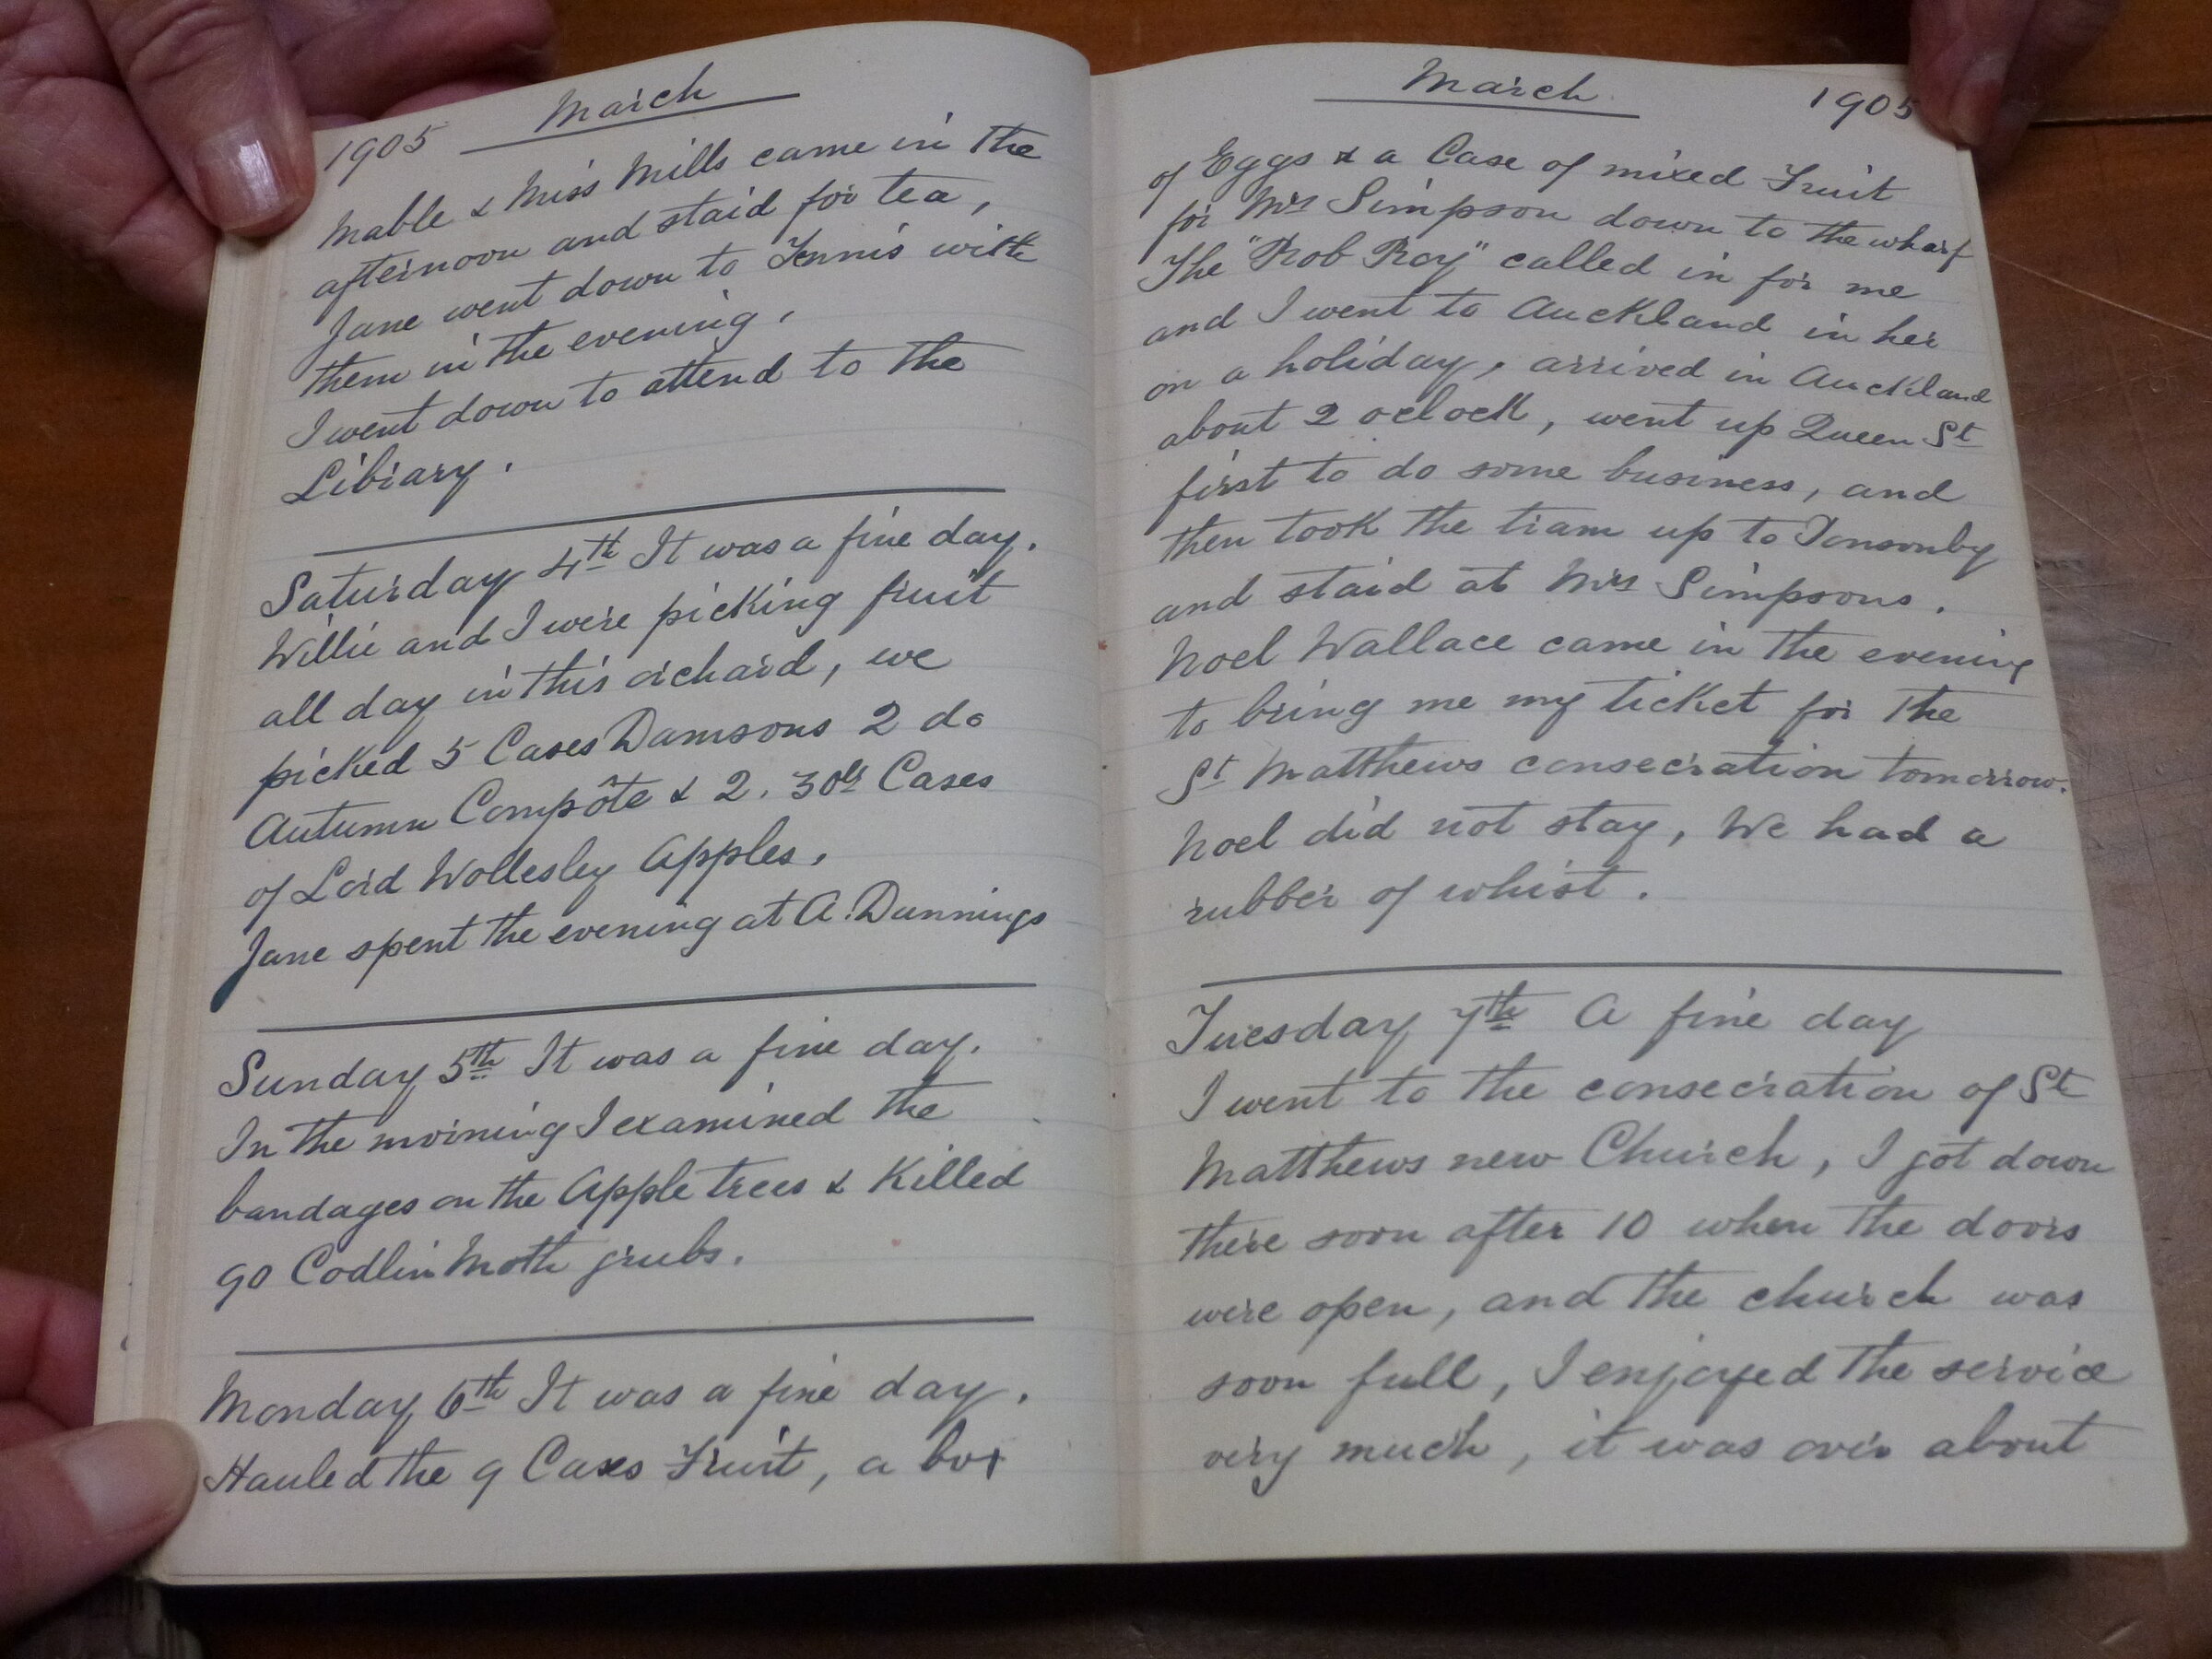 1905 March
Mable & Miss Mills came in the
afternoon and staid for tea,
Jane went down to Tennis with
them in the evening.
I went down to attend to the
Library.
Saturday 4th It was a fine day.
Willie and I were picking fruit
all day in this orchard, we
picked 5 Cases Damsons 2 do
Autumn Compôte & 2. 30lb Cases
of Lord Wollesley Apples.
Jane spent the evening at A. Dunnings
Sunday 5th It was a fine day.
In the morning I examined the
bandages on the Apple trees & Killed
90 Codlin Moth grubs.
Monday 6th It was a fine day.
Hauled the 9 Cases Fruit, a box
March 1905
of Eggs & a Case of mixed Fruit
for Mrs Simpson down to the wharf
The "Rob Roy" called in for me
and I went to Auckland in her
on a holiday, arrived in Auckland
about 2 oclock, went up Queen St
first to do some business, and
then took the tram up to Ponsonby
and staid at Mrs Simpsons.
Noel Wallace came in the evening
to bring me my ticket for the
St Matthews consecration tomorrow.
Noel did not stay, We had a
rubber of whist.
Tuesday 7th A fine day
I went to the consecration of St
Matthews new Church, I got down
there soon after 10 when the doors
were open, and the church was
soon full, I enjoyed the service
very much, it was over about